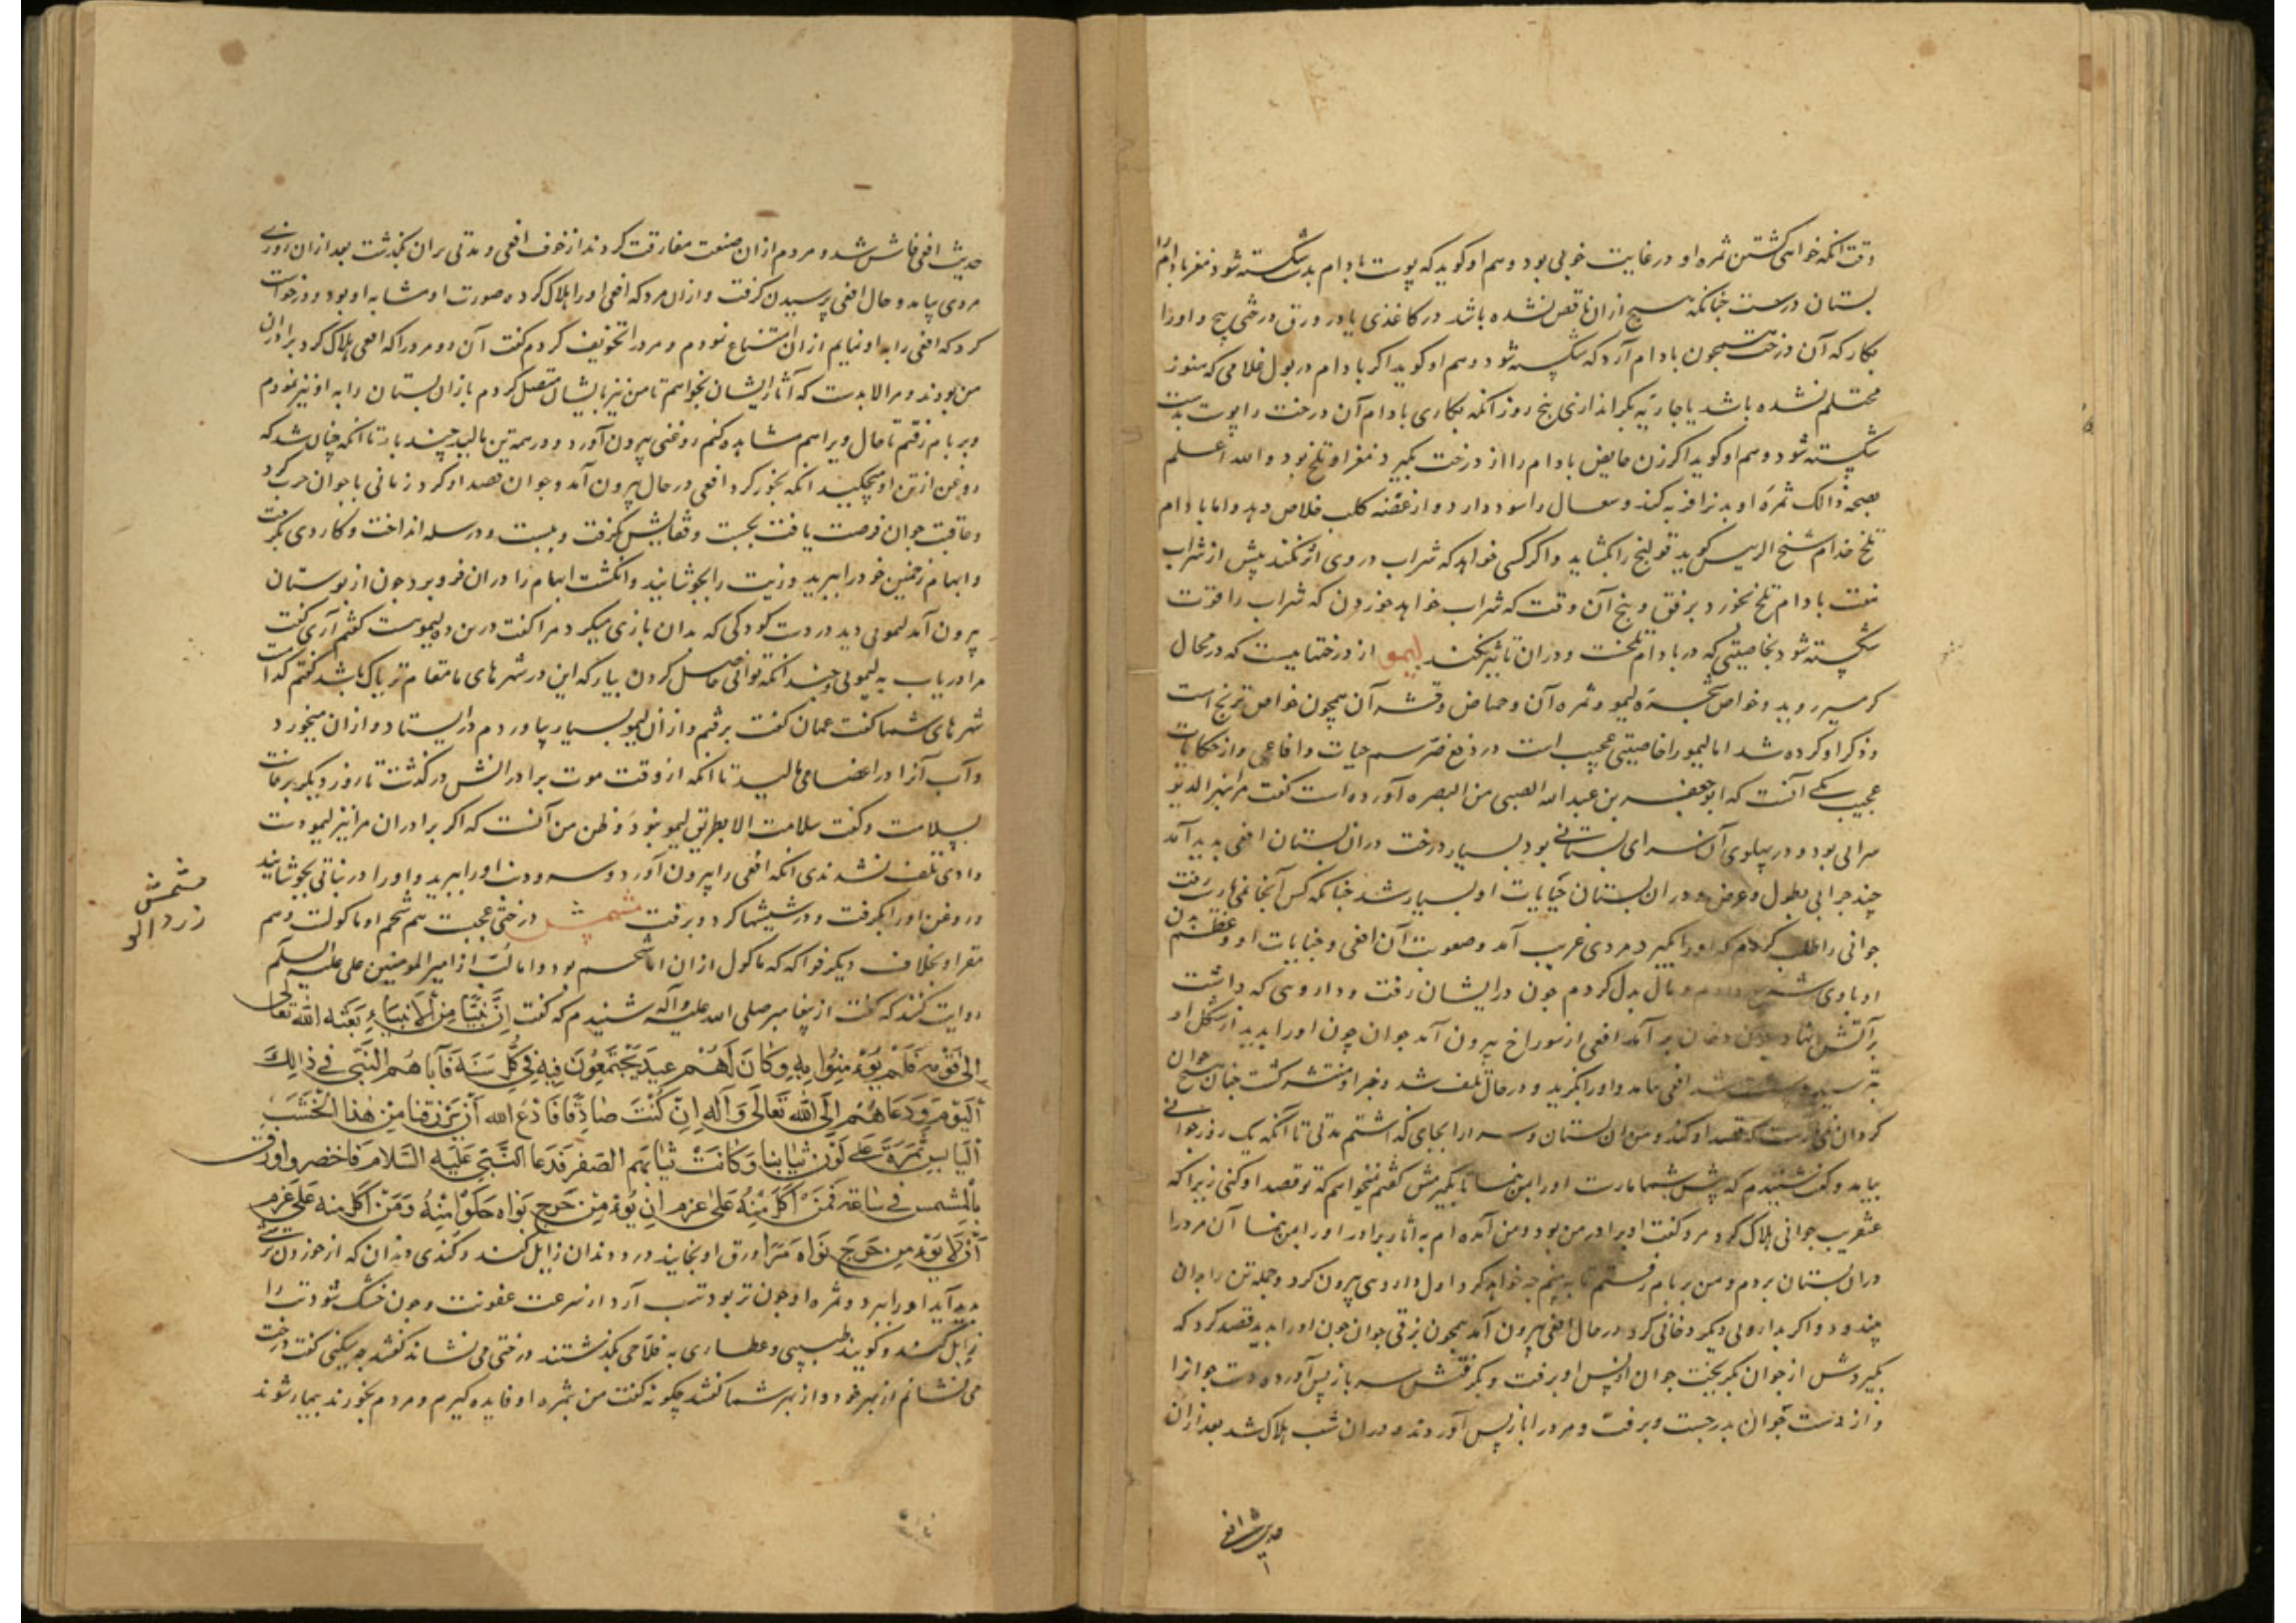 وقت انکه خواهی کشتن ثمره او در غایت خوبی بود و هم او کوید که پوست بادام بدست شکسته شود مغز بادام را
بستان درست چنانکه هیچ ازان ناقص نشده باشد در کاغذی یا در ورق درختی پیچ و اورا
بکار که آن درخت همچون بادام آرد که شکسته شود و هم او کوید اکر بادام در بول غلامی که هنوز
محتلم نشده باشد یا جاریه بکر اندازی پنج روز انکه بکاری بادام آن درخت را پوست بدست
شکسته شود و هم او کوید اکر زن حایض بادام را از درخت بکیرد مغز او تلخ بود و الله اعلم
ثمره او بدنرا فربه کند و سعال را سود دارد و از عضه کلب خلاص دهد و اما بادام
تلخ شیخ الرییس کوید قولنج را بکشاید و اکر کسی خواهد که شراب در وی اثر نکند پیش از شراب
بادام تلخ بخورد آن وقت که شراب خواهد خوردن که شراب را قوت
شکسته شود بخاصیتی که در بادام تلخست و دران تاثیر نکند لیمو از درختهاییست که در محال
کرمسیر روید و خواص شجره لیمو و ثمره آن و حماض و قشر آن همچون خواص ترنج است
و ذکر او کرده شد اما لیمورا خاصیتی عجیب است در دفع ضرر سم حیات و افاعی و از حکایات
عجیب یکی آنست که ابو جعفر بن عبد الله من البصره آورده است کفت
سرایی بود و در پهلوی آن سرای بستانی بود بسیار درخت دران بستان افعی بدید آمد
چند جرابی بطول و عرض و دران بستان جنایات او بسیار شد چنانکه کس آنجا نمی یارست رفت
جوانی را طلب کردم که اورا بکیرد مردی غریب آمد و صعوبت آن افعی و جنایات او و عظم بدن
او باوی و مال بذل کردم چون درایشان رفت و داروی که داشت
بر آتش نهاد و دخان بر آمد افعی از سوراخ بیرون آمد جوان چون اورا بدید از شکل او
بترسید افعی بیامد و اورا بکزید و در حال تلف شد و خبر او منتشر کشت چنان هیچ جوان
کرد ان که قصد او کند و من آن بستان و سرا را بجای کذاشتم مدتی تا آنکه یک روز جوانی
بیامد و کفت شنیدم که پیش شما ماریست اورا بمن نما تا بکیرمش کفتم نمیخواهم که تو قصد او کنی زیرا که
عنقریب جوانی هلاک کرد مرد کفت او برادر من بود و من آمده ام به اثار برادر اورا بمن نما آن مرد را
دران بستان بردم و من بر بام رفتم تا به بینم چه خواهد کرد اول داروی بیرون کرد و جمله تن را بدان
بیندود و اکر بدارویی دیکر دخانی کرد در حال افعی بیرون آمد همچون برقی جوان چون اورا بدید قصد کرد که
بکیردش از جوان بکریخت جوان از پس او برفت و بکرفتش سر باز پس آورد و دست جوانرا
و از دست جوان بدر جست و برفت و مرد را باز پس آوردند و دران شب هلاک شد بعد ازان
حدیث افعی
حدیث افعی فاش شد و مردم ازان صنعت مفارقت کردند از خوف افعی و مدتی بران بکذشت بعد ازان روزی
مردی بیامد و حال افعی پرسیدن کرفت و ازان مرد که افعی اورا هلاک کرده صورت او مشابه او بود و درخواست
کرد که افعی را به او نمایم ازان امتناع نمودم و مرد را تخویف کردم کفت آن دو مرد را که افعی هلاک کرد برادران
من بودند و مرا لابدست که آثار ایشان بخواهم تا من نیز بایشان متصل کردم باز آن بستان را به او نیز نمودم
و بر بام رفتم تا حال ویرا هم مشاهده کنم روغنی بیرون آورد و در همه تن بمالید چند بار تا انکه چنان شد که
روغن از تن او میچکید انکه بخور کرد افعی در حال بیرون آمد و جوان قصد او کرد زمانی با جوان حرب کرد
و عاقبت جوان فرصت یافت بجست و قفایش بکرفت و ببست و در سله انداخت و کاردی بکرفت
و ابهام خود را ببرید و زیت را بجوشانید و انکشت ابهام را دران فرو برد چون از بوستان
بیرون آمد لیمویی دید در دست کودکی که بدان بازی میکرد مرا کفت درین ده لیمو هست کفتم آری کفت
مرا دریاب به لیمویی و چندانکه توانی حاصل کردن بیار که این در شهرهای ما بمقام تریاک باشد کفتم کدامست
شهرهای شما کفت عمان کفت برفتم و ازان لیمو بسیار بیاوردم در ایستاد و ازان میخورد
و آب آنرا در اعضا می مالید تا انکه از وقت موت برادرانش درکذشت تا روز دیکر برخاست
بسلامت و کفت سلامت الا بطریق لیمو نبود و ظن من آنست که اکر برادران مرا نیز لیمو دست
دادی تلف نشدندی انکه افعی را بیرون آورد و سر و دنب اورا ببرید و اورا در بجوشانید
و روغن اورا بکرفت و در شیشها کرد و برفت مشمش درختی عجیبست هم شحم او ماکولست و هم
مغز او بخلاف دیکر فواکه که ماکول ازان اما شحم بود و اما لب از امیر المومنین علی علیه السلم
روایت کنند که کفت از پیغامبر صلی الله علیه وآله شنیدم که کفت اِنَّ نَبِیًّا مِنَ الاَنبِیَاءِ بَعَثَهُ الله تعالی
الی قومه فَلَم یُؤمِنُوا بِهِ وَکانَ لَهُم عِید یَجتَمِعُونَ فیه فِی کُلِّ سَنَة فَاَتاهُم النَّبی فی ذلِکَ
الیَومِ وَدَعاهُم اِلَی اللهِ تَعَالی وَآله اِن کُنتَ صَادِقًا فَادعُ الله اَن یَرزُقَنا مِن هٰذا الخَشَبِ
الیَابِسِ ثَمَرَةً عَلی لَونِ ثِیابِنا وَکَانَت ثیابهم الصفر فَدَعَا النَّبی عَلَیهِ السَّلام فَاخضر واورق
بالمشمس فی ساعة فَمَن اَکَلَ مِنهُ عَلی عزم اَن یُؤمِن خَرَجَ نَواه حلوًا مِنهُ وَمَن اَکَل منه عَلی عَزم
اَن لَا یُؤمِن خَرَجَ نَواه مُرًّا ورق او بخایند درد دندان زایل کند و کندی دندان که از خوردن ترشی
بدید آید اورا ببرد و ثمره او چون تر بود تب آرد از سرعت عفونت و چون خشک شود تب را
زایل کند و کویند طبیبی و عطاری به فلاحی بکذشتند درختی می نشاند کفتند چه میکنی کفت درخت
می نشانم از بهر خود و از بهر شما کفتند چکونه کفت من بثمره او فایده کیرم و مردم بخورند بیمار شوند
مشمش
زردالو